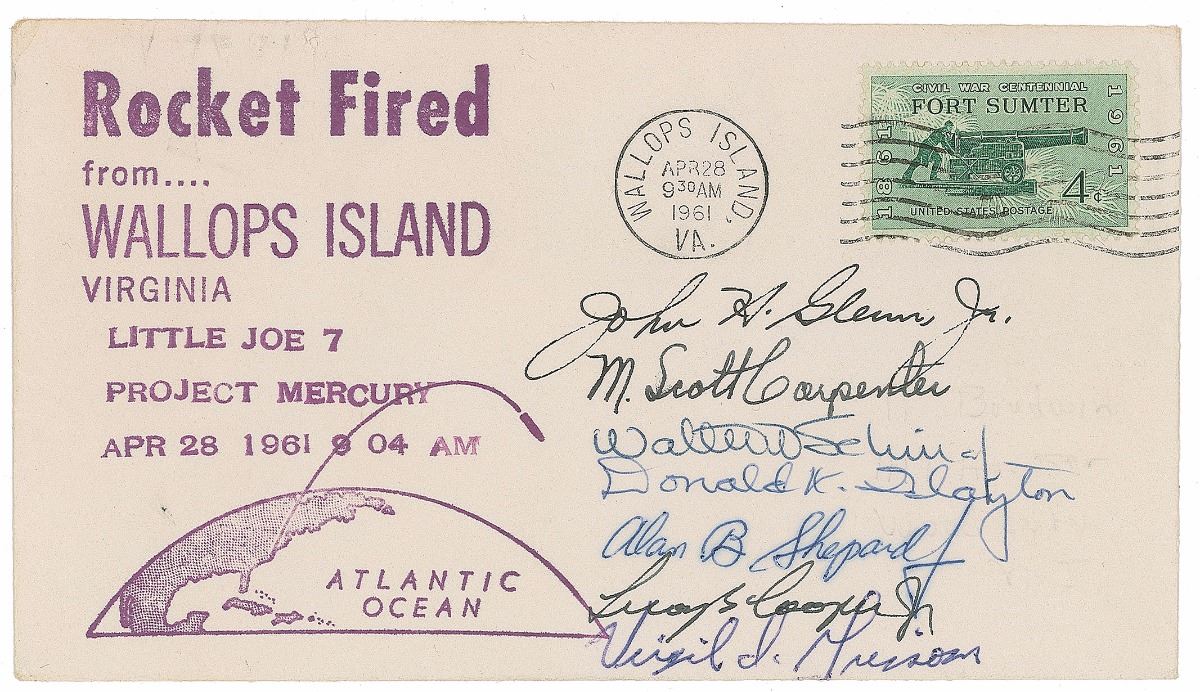 Rocket Fired
from....
WALLOPS ISLAND
VIRGINIA
LITTLE JOE 7
PROJECT MERCURY
APR 28 1961 9 04 AM
ATLANTIC
OCEAN
WALLOPS ISLAND,
APR 28
9 30 AM
1961
VA.
CIVIL WAR CENTENNIAL
FORT SUMTER
1861
1961
4¢
UNITED STATES POSTAGE
John H. Glenn, Jr.
M. Scott Carpenter
Walter M Schirra Jr
Donald K. Slayton
Alan B. Shepard Jr
Leroy G Cooper Jr
Virgil I. Grissom